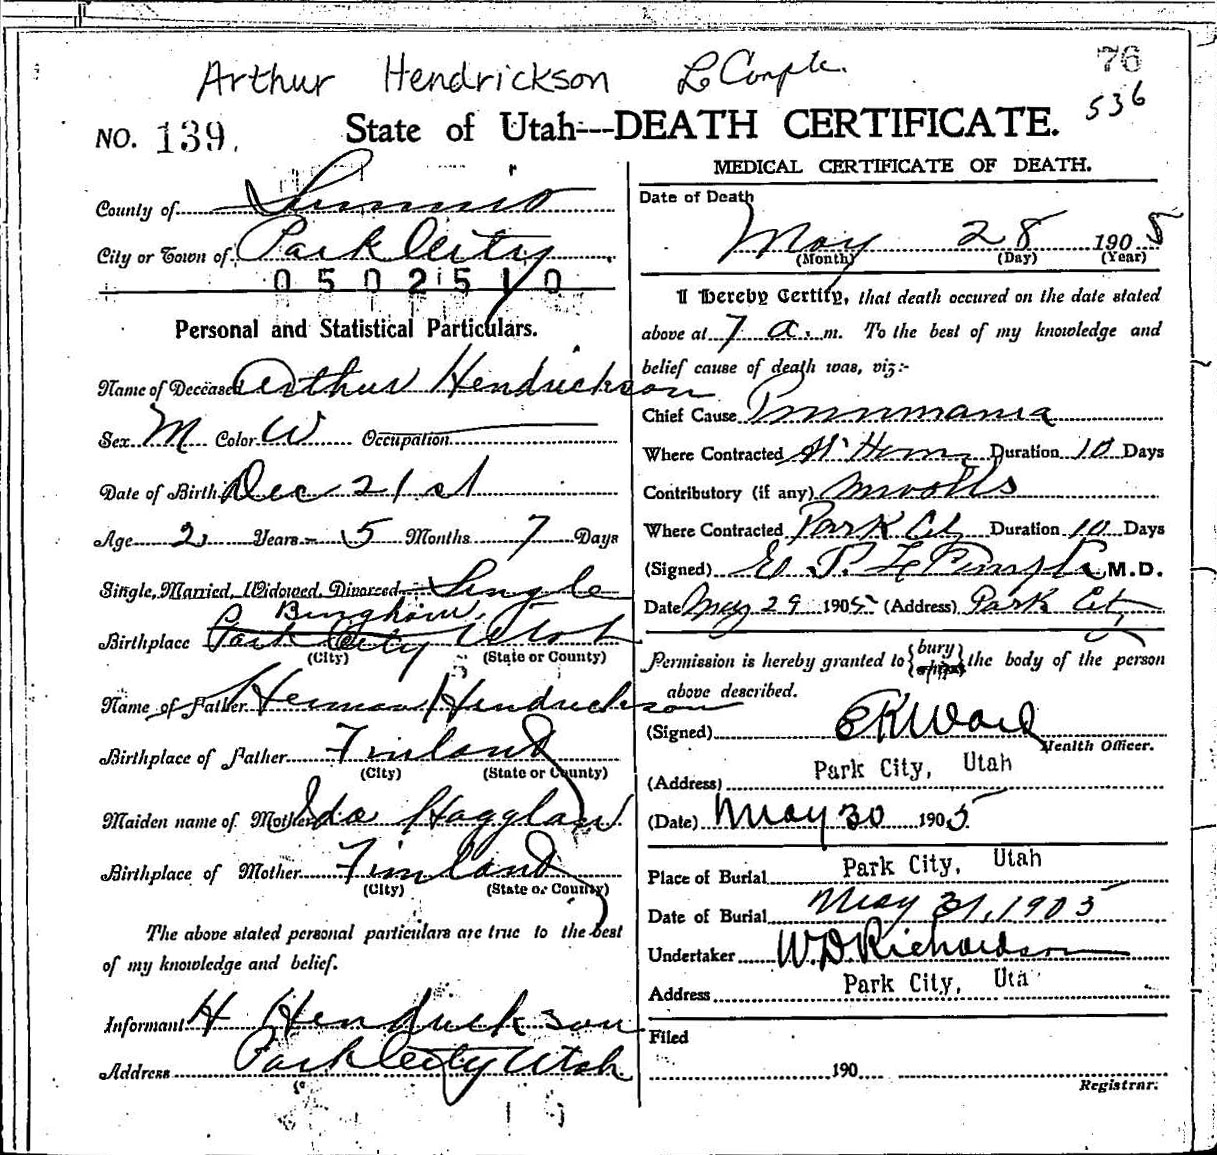 Arthur Hendrickson Le Compte.
76
536
NO. 139.
State of Utah---DEATH CERTIFICATE.
County of Summit
City or Town of Park City
0502510
Personal and Statistical Particulars.
Name of Deceased Arthur Hendrickson
Sex M Color W Occupation
Date of Birth Dec 21st
Age 2 Years 5 Months 7 Days
Single, Married, Widowed, Divorced Single
Bingham
Birthplace Park City Utah
(City) (State or County)
Name of Father Herman Hendrickson
Birthplace of Father Finland
(City) (State or County)
Maiden name of Mother Ida Hagglan
Birthplace of Mother Finland
(City) (State or County)
The above stated personal particulars are true to the best
of my knowledge and belief.
Informant H Hendrickson
Address Park City Utah
MEDICAL CERTIFICATE OF DEATH.
Date of Death
May 28 1905
(Month) (Day) (Year)
I Hereby Certify, that death occured on the date stated
above at 7 a.m. To the best of my knowledge and
belief cause of death was, viz:-
Chief Cause Pnumania
Where Contracted At Home Duration 10 Days
Contributory (if any)
Where Contracted Park City Duration 10 Days
(Signed) E. P. Le Compte M.D.
Date May 29 1905 (Address) Park City
Permission is hereby granted to {bury} the body of the person
above described.
(Signed) E K Ward
Health Officer.
(Address) Park City, Utah
(Date) May 30 1905
Place of Burial Park City, Utah
Date of Burial May 31, 1905
Undertaker W.D. Richardson
Address Park City, Uta
Filed
190
Registrar.